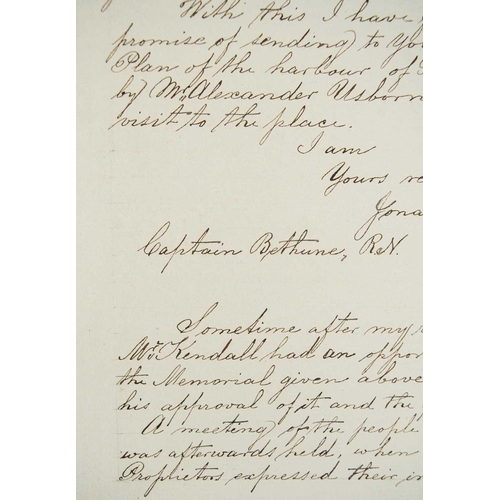 With this I have,
promise of sending to
Plan of the harbour of
by Mr. Alexander Usborn
visit to the place.
I am
Yours re
Jona
Captain Bethune, R.N.
Sometime after my
Mr. Kendall had an oppor
the Memorial given above
his approval of it and the
A meeting of the people
was afterwards held, when
Proprietors expressed their in